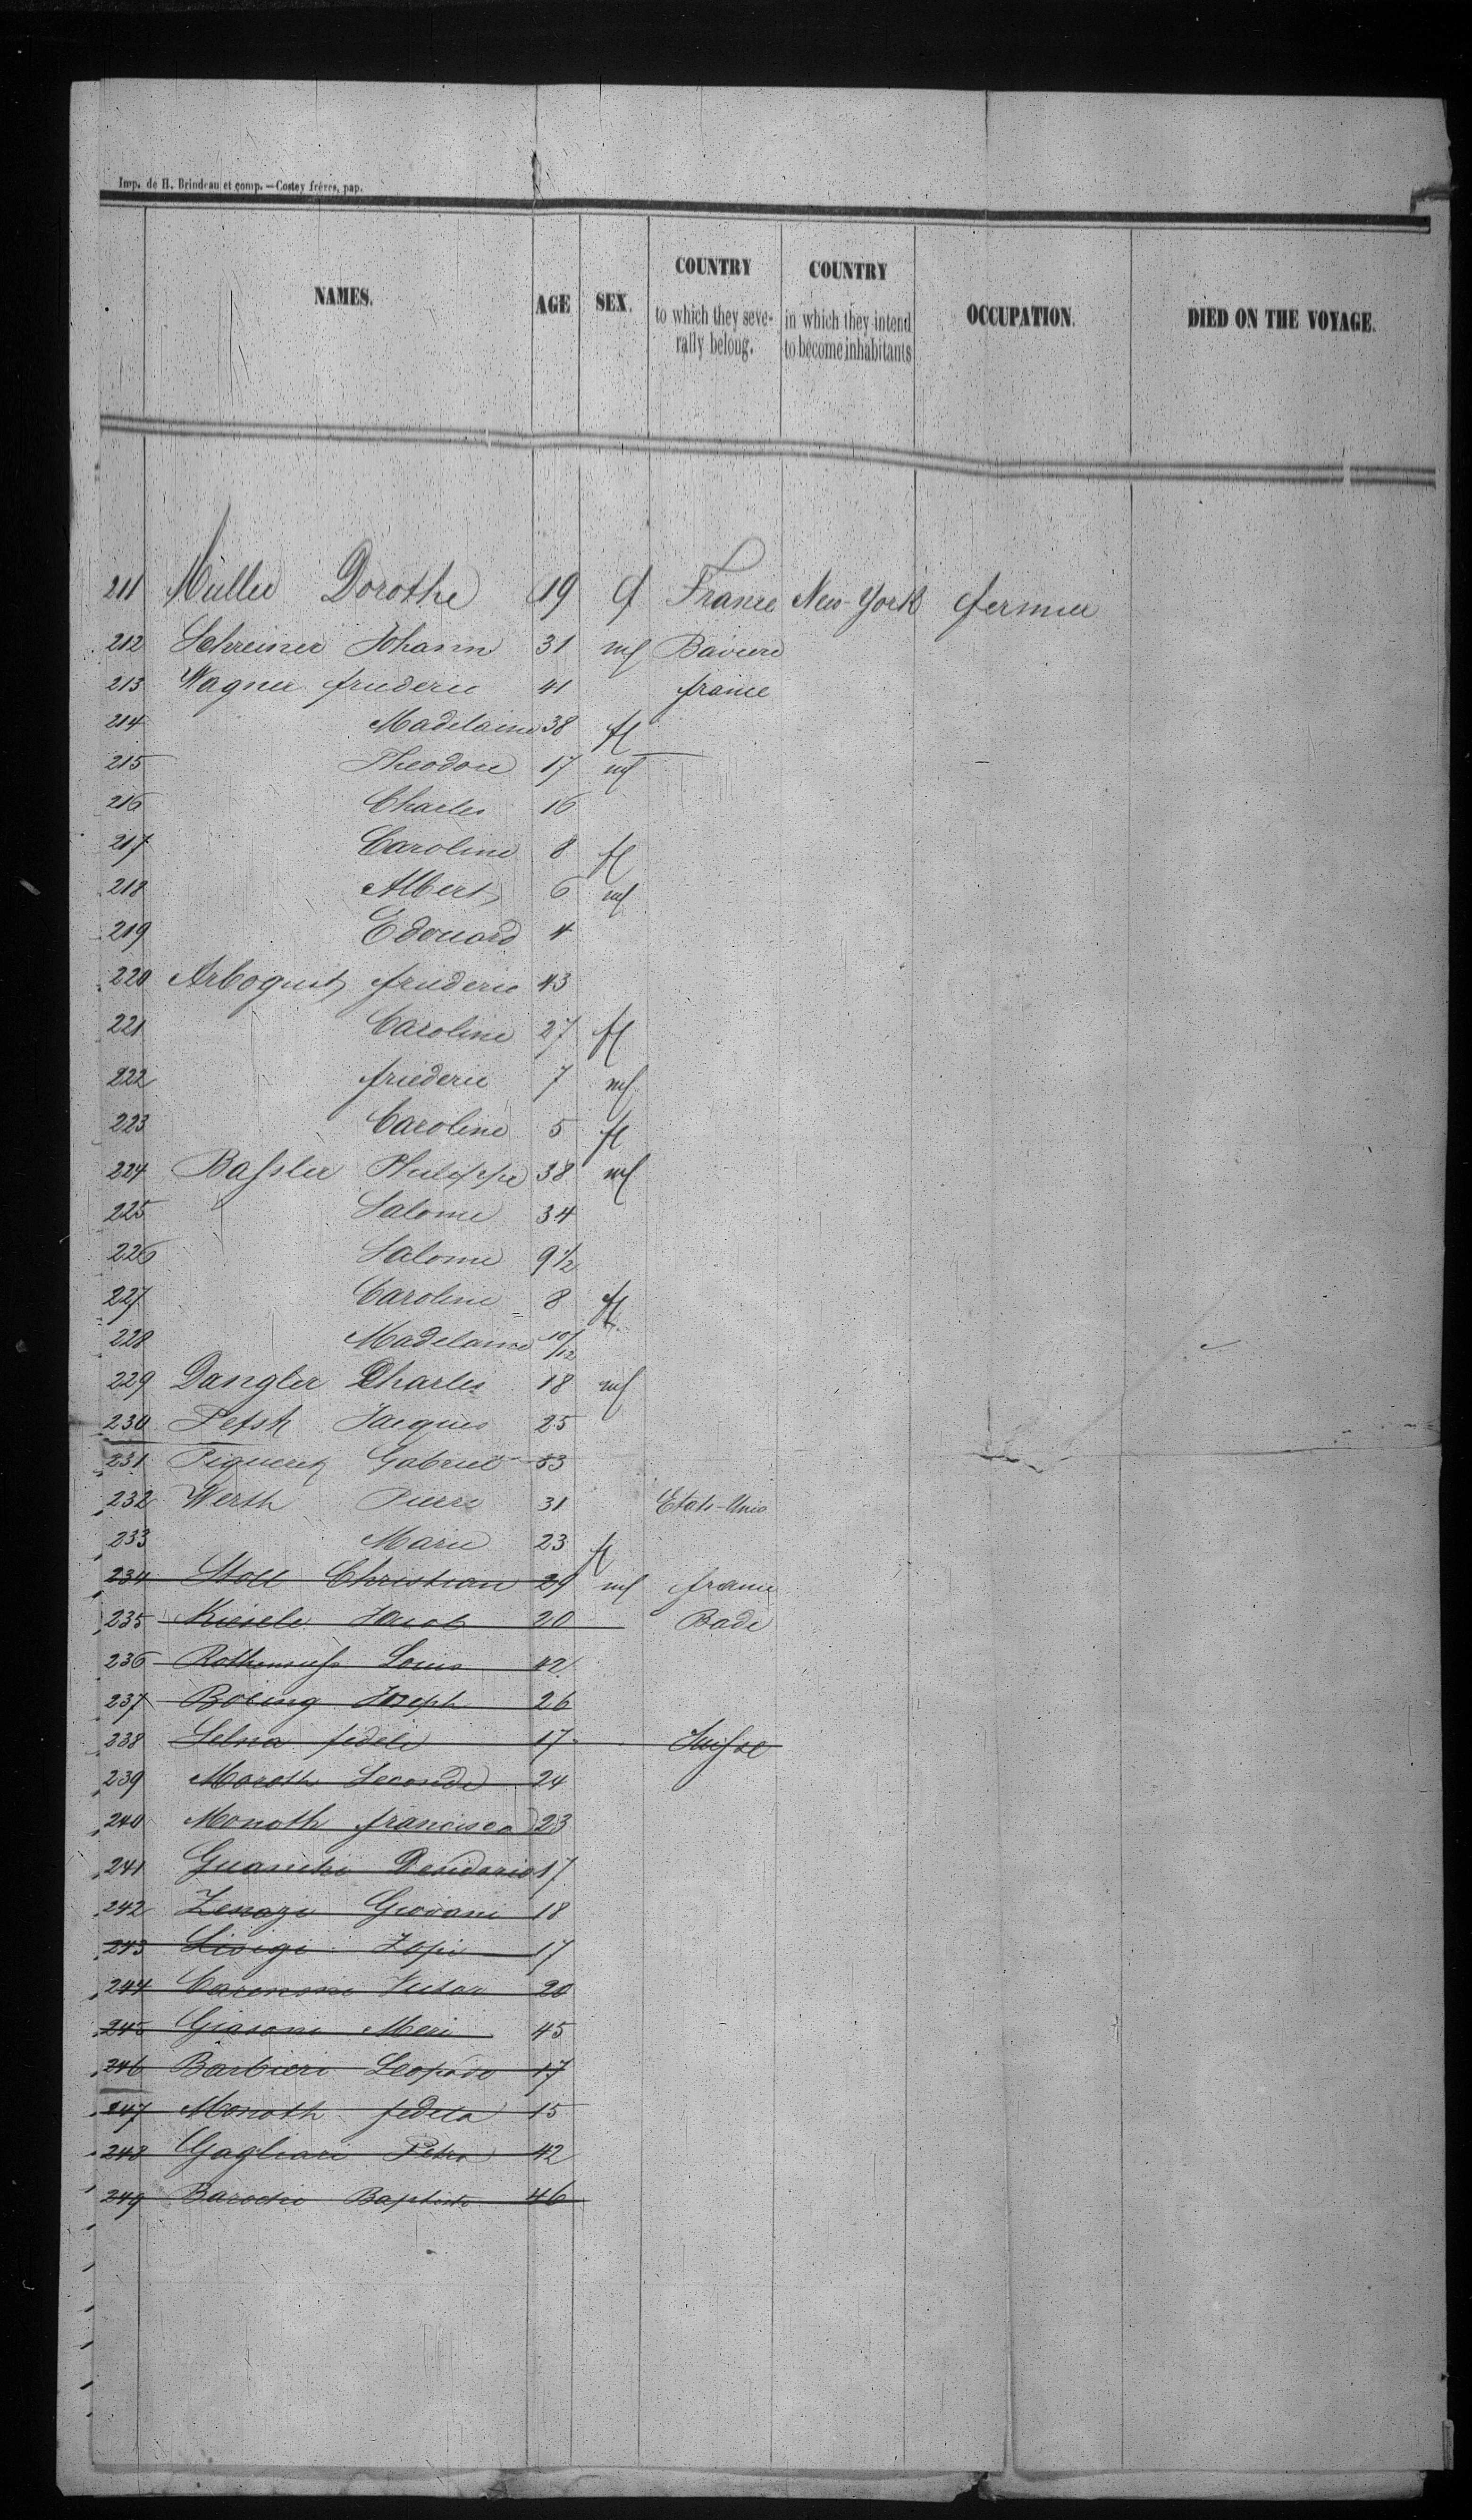 Imp. de H. Brindeau et comp. — Costey frères, pap.
NAMES. AGE SEX. COUNTRY to which they severally belong. COUNTRY in which they intend to become inhabitants OCCUPATION. DIED ON THE VOYAGE.
211 Müller Dorothe 19 f France New-York fermier
212 Schreiner Johann 31 m Baviere
213 Wagner friederic 41 france
214 Madelaine 38 f
215 Theodore 17 m
216 Charles 16
217 Caroline 8 f
218 Albert 6 m
219 Edouard 4
220 Arbogust friederic 43
221 Caroline 27 f
222 friederic 7 m
223 Caroline 5 f
224 Bassler Philippe 38 m
225 Salome 34
226 Salome 9 1/2
227 Caroline 8 f
228 Madelaine 10/12
229 Dangler Charles 18 m
230 Petsh Jacques 25
231 Piquerez Gabriel 53
232 Werth Pierre 31 Etats-Unis
233 Marie 23 f
234 Stoll Christian 29 m france
235 Kiesele Jacob 20 Bade
236 Louis 42
237 Joseph 26
238 Selna fidele 17 Suisse
239 Moroth Secondo 24
240 Monoth francisco 23
241 Desiderio 17
242 Giovani 18
243 17
244 Victor 20
245 Giasoni Meri 45
246 Barbieri Leopoldo 17
247 Monoth fedela 15
248 Gagliari Petro 42
249 Barochi Baptiste 46